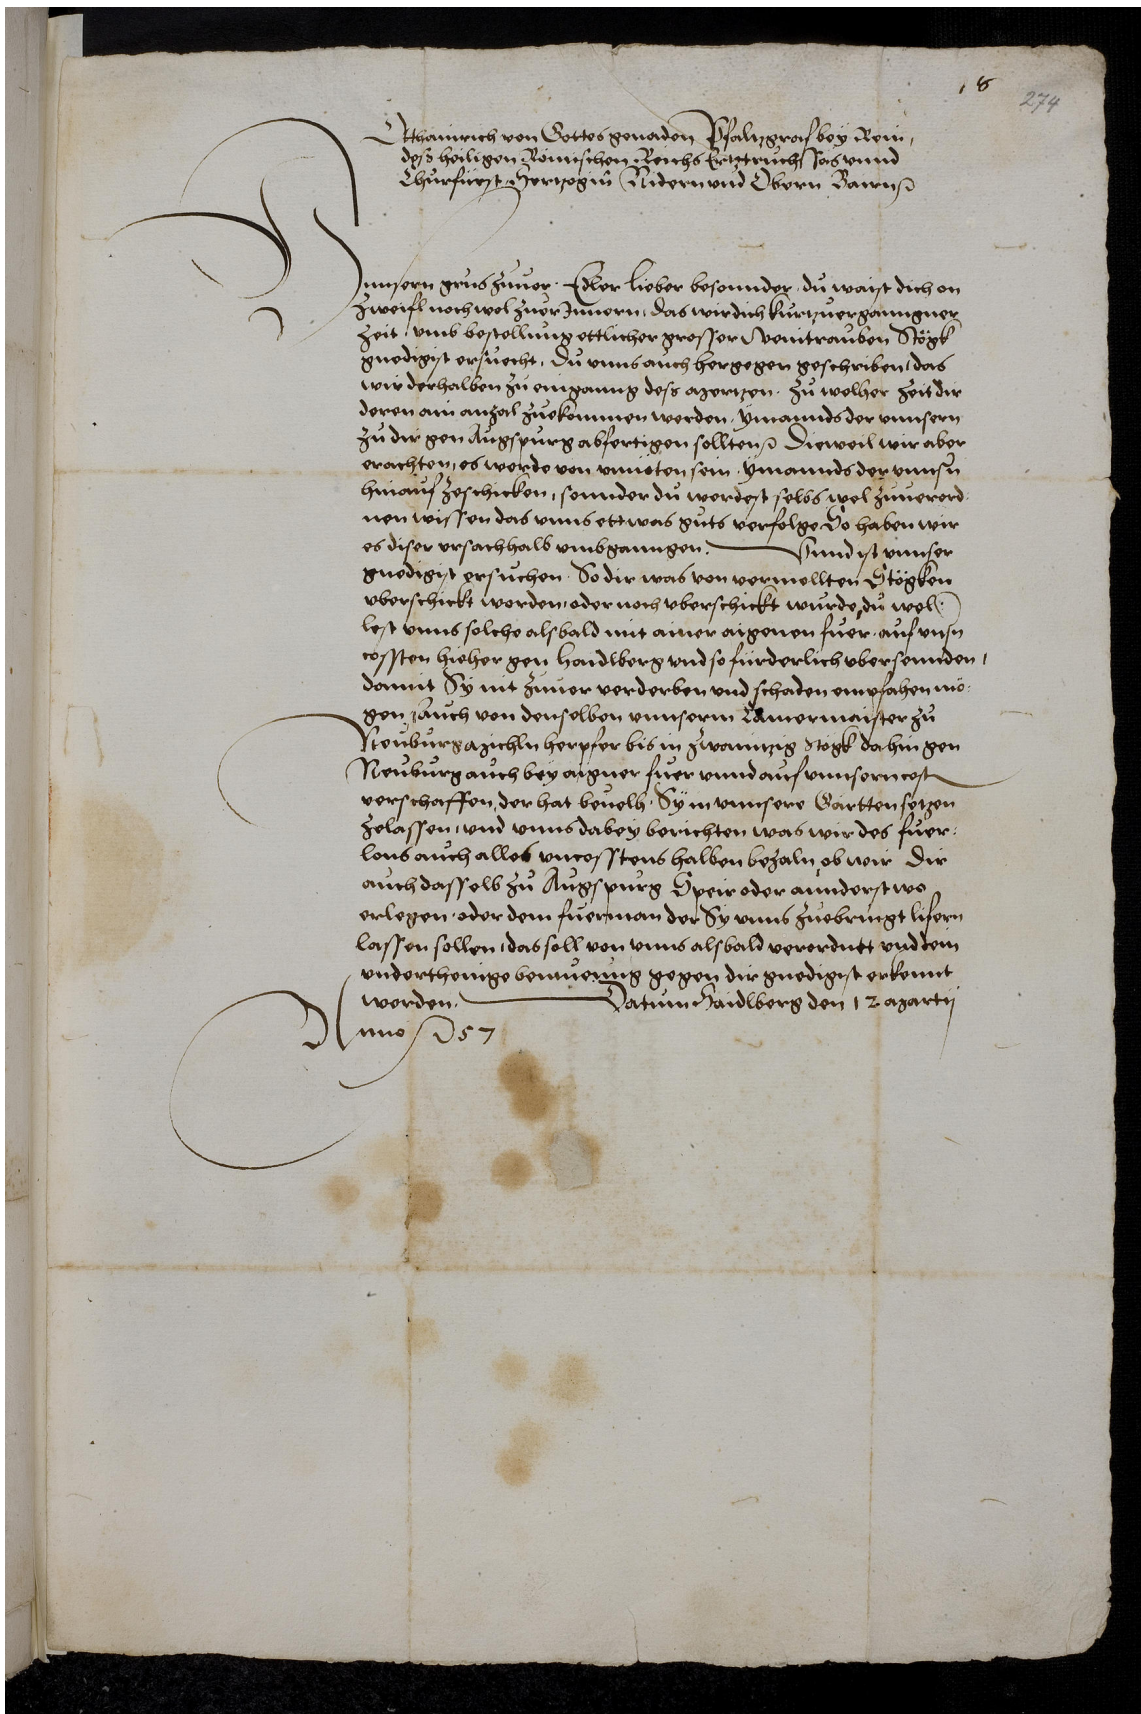 18
274
Otthainrich von Gottes genaden Pfaltzgraf bey Rein,
dess heiligen Römischen Reichs Ertztruchsas unnd
Churfürst Hertzog in Nidern und Obern Bairn
Unnsern grus zuuor. Edler lieber besonnder. du waist dich on
zweifl noch wol zuer Innern, das wir dich kurtzuerganngner
zeit, umb bestellung ettlicher grosser Weintrauben Stögk
gnedigist ersuecht. Du unns auch hergegen geschriben, das
wir derhalben zu einganng dess Mertzen. zu welher zeit dir
deren ain anzal zuekommen werden. ymannds der unnsern
zu dir gen Augspurg abfertigen sollten Dieweil wir aber
erachten, es werde von unnöten sein. ymannds der unnsn
hinauf zeschicken, sonnder du werdest selbs wol zuuerord-
nen wissen das unns ettwas guts verfolge So haben wir
es diser ursach halb umbganngen. Unnd ist unnser
gnedigist ersuchen. So dir was von vermellten Stögken
uberschickt worden, oder noch uberschickt wurde, du wol-
lest unns solche alsbald mit ainer aigenen fuer. auf unsn
cossten hieher gen Haidlberg und so fürderlich ubersennden,
damit Sy nit zuuer verderben und schaden empfahen mö-
gen, auch von denselben unnserm Camermaister zu
Neuburg Micheln herpfer bis in zwaintzig stögk dahin gen
Neuburg auch bey aigner fuer unnd auf unnsern cost
verschaffen, der hat beuelh. Sy in unnsere Gärtten setzen
zelassen, und unns dabey berichten was wir des fuer-
lons auch alles uncosstens halben bezaln, ob wir Dir
auch dasselb zu Augspurg Speir oder annderstwo
erlegen. oder dem fuerman der Sy unns zuebringt lifern
lassen sollen, das soll von unns alsbald verordnet und dein
underthenige bemüeung gegen dir gnedigist erkennt
werden. Datum Haidlberg den 12 Martij
Anno 57